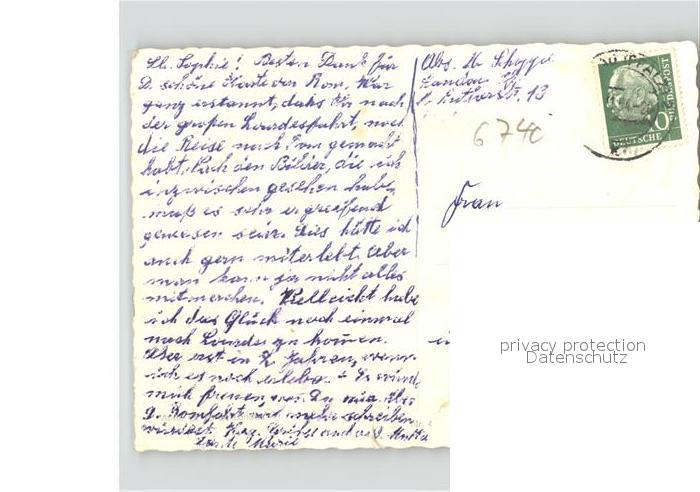 Lb. Sophie! Besten Dank für
D. schöne Karte aus Rom. War
ganz erstaunt, dahs Ihr nach
der großen Lourdesfahrt, noch
die Reise nach Rom gemacht
habt. Nach den Bilder, die ich
inzwischen gesehen habe,
muß es sehr ergreifend
gewesen sein. Dies hätte ich
auch gern miterlebt. Aber
man kann ja nicht alles
mitmachen. Vielleicht habe
ich das Glück noch einmal
nach Lourdes zu kommen.
Aber erst in 2 Jahren, wenn
ich es noch erlebe. Es würde
mich freuen, wenn Du mir über
D. Romfahrt noch mehr schreiben
würdest. Grüße auch a. d. Mutter
Tante Marie
Abs. M.
Landau
13
6740
Frau
10
DEUTSCHE BUNDESPOST
privacy protection
Datenschutz